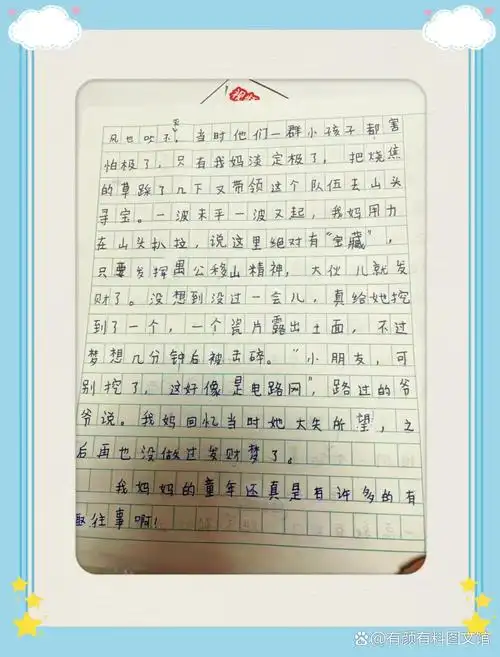 风也吹不灭，当时他们一群小孩子都害
怕极了，只有我妈淡定极了，把烧焦
的草踩了几下又带领这个队伍去山头
寻宝。一波未平一波又起，我妈用力
在山头扒拉，说这里绝对有“宝藏”，
只要发挥愚公移山精神，大伙儿就发
财了。没想到没过一会儿，真给她挖
到了一个，一个瓷片露出土面，不过
梦想几分钟后被击碎。“小朋友，可
别挖了，这好像是电路网”，路过的爷
爷说。我妈回忆当时她大失所望，之
后再也没做过发财梦了。
我妈妈的童年还真是有许多的有
趣往事啊！
@有颜有料图文馆